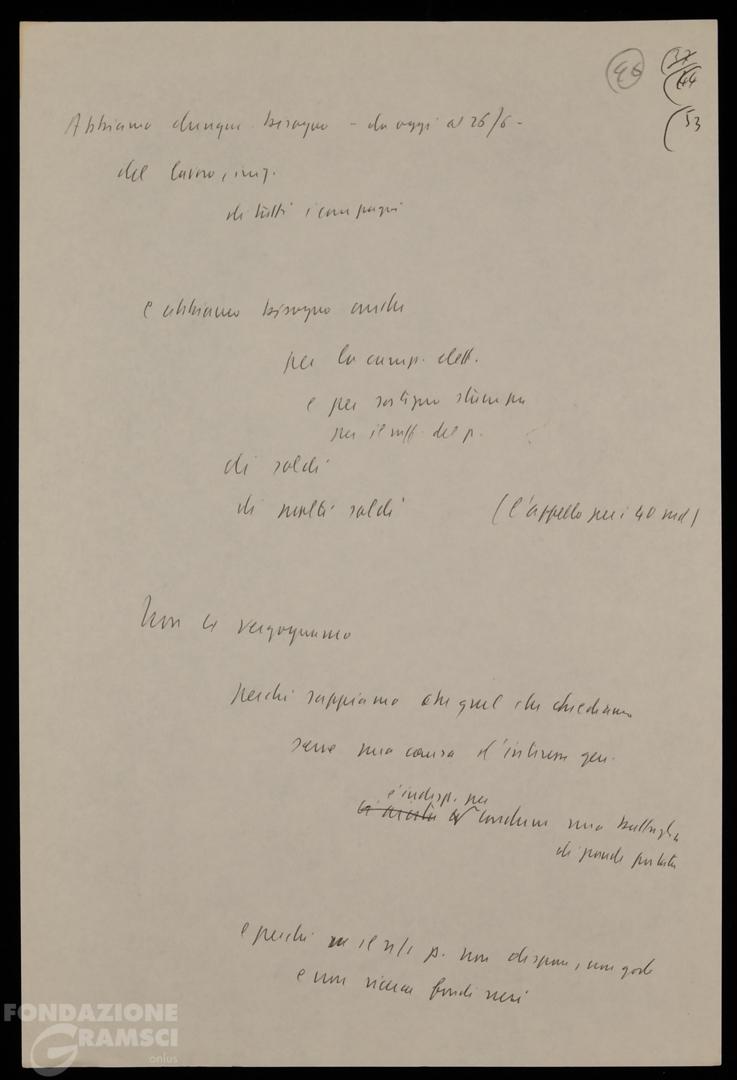 46
37
44
53
Abbiamo dunque bisogno – da oggi al 26/6 –
del lavoro,
di tutti i compagni
e abbiamo bisogno anche
per la camp. elett.
e per sostegno stampa
per il raff. del p.
di soldi
di molti soldi (l'appello per i 40 md)
Non ci vergogniamo
perché sappiamo che quel che chiediamo
serve una causa d'interesse gen.
è indisp. per
condurre una battaglia
di grande portata
e perché il n/ p. non dispone, non gode
e non riceve fondi neri
FONDAZIONE
GRAMSCI
onlus